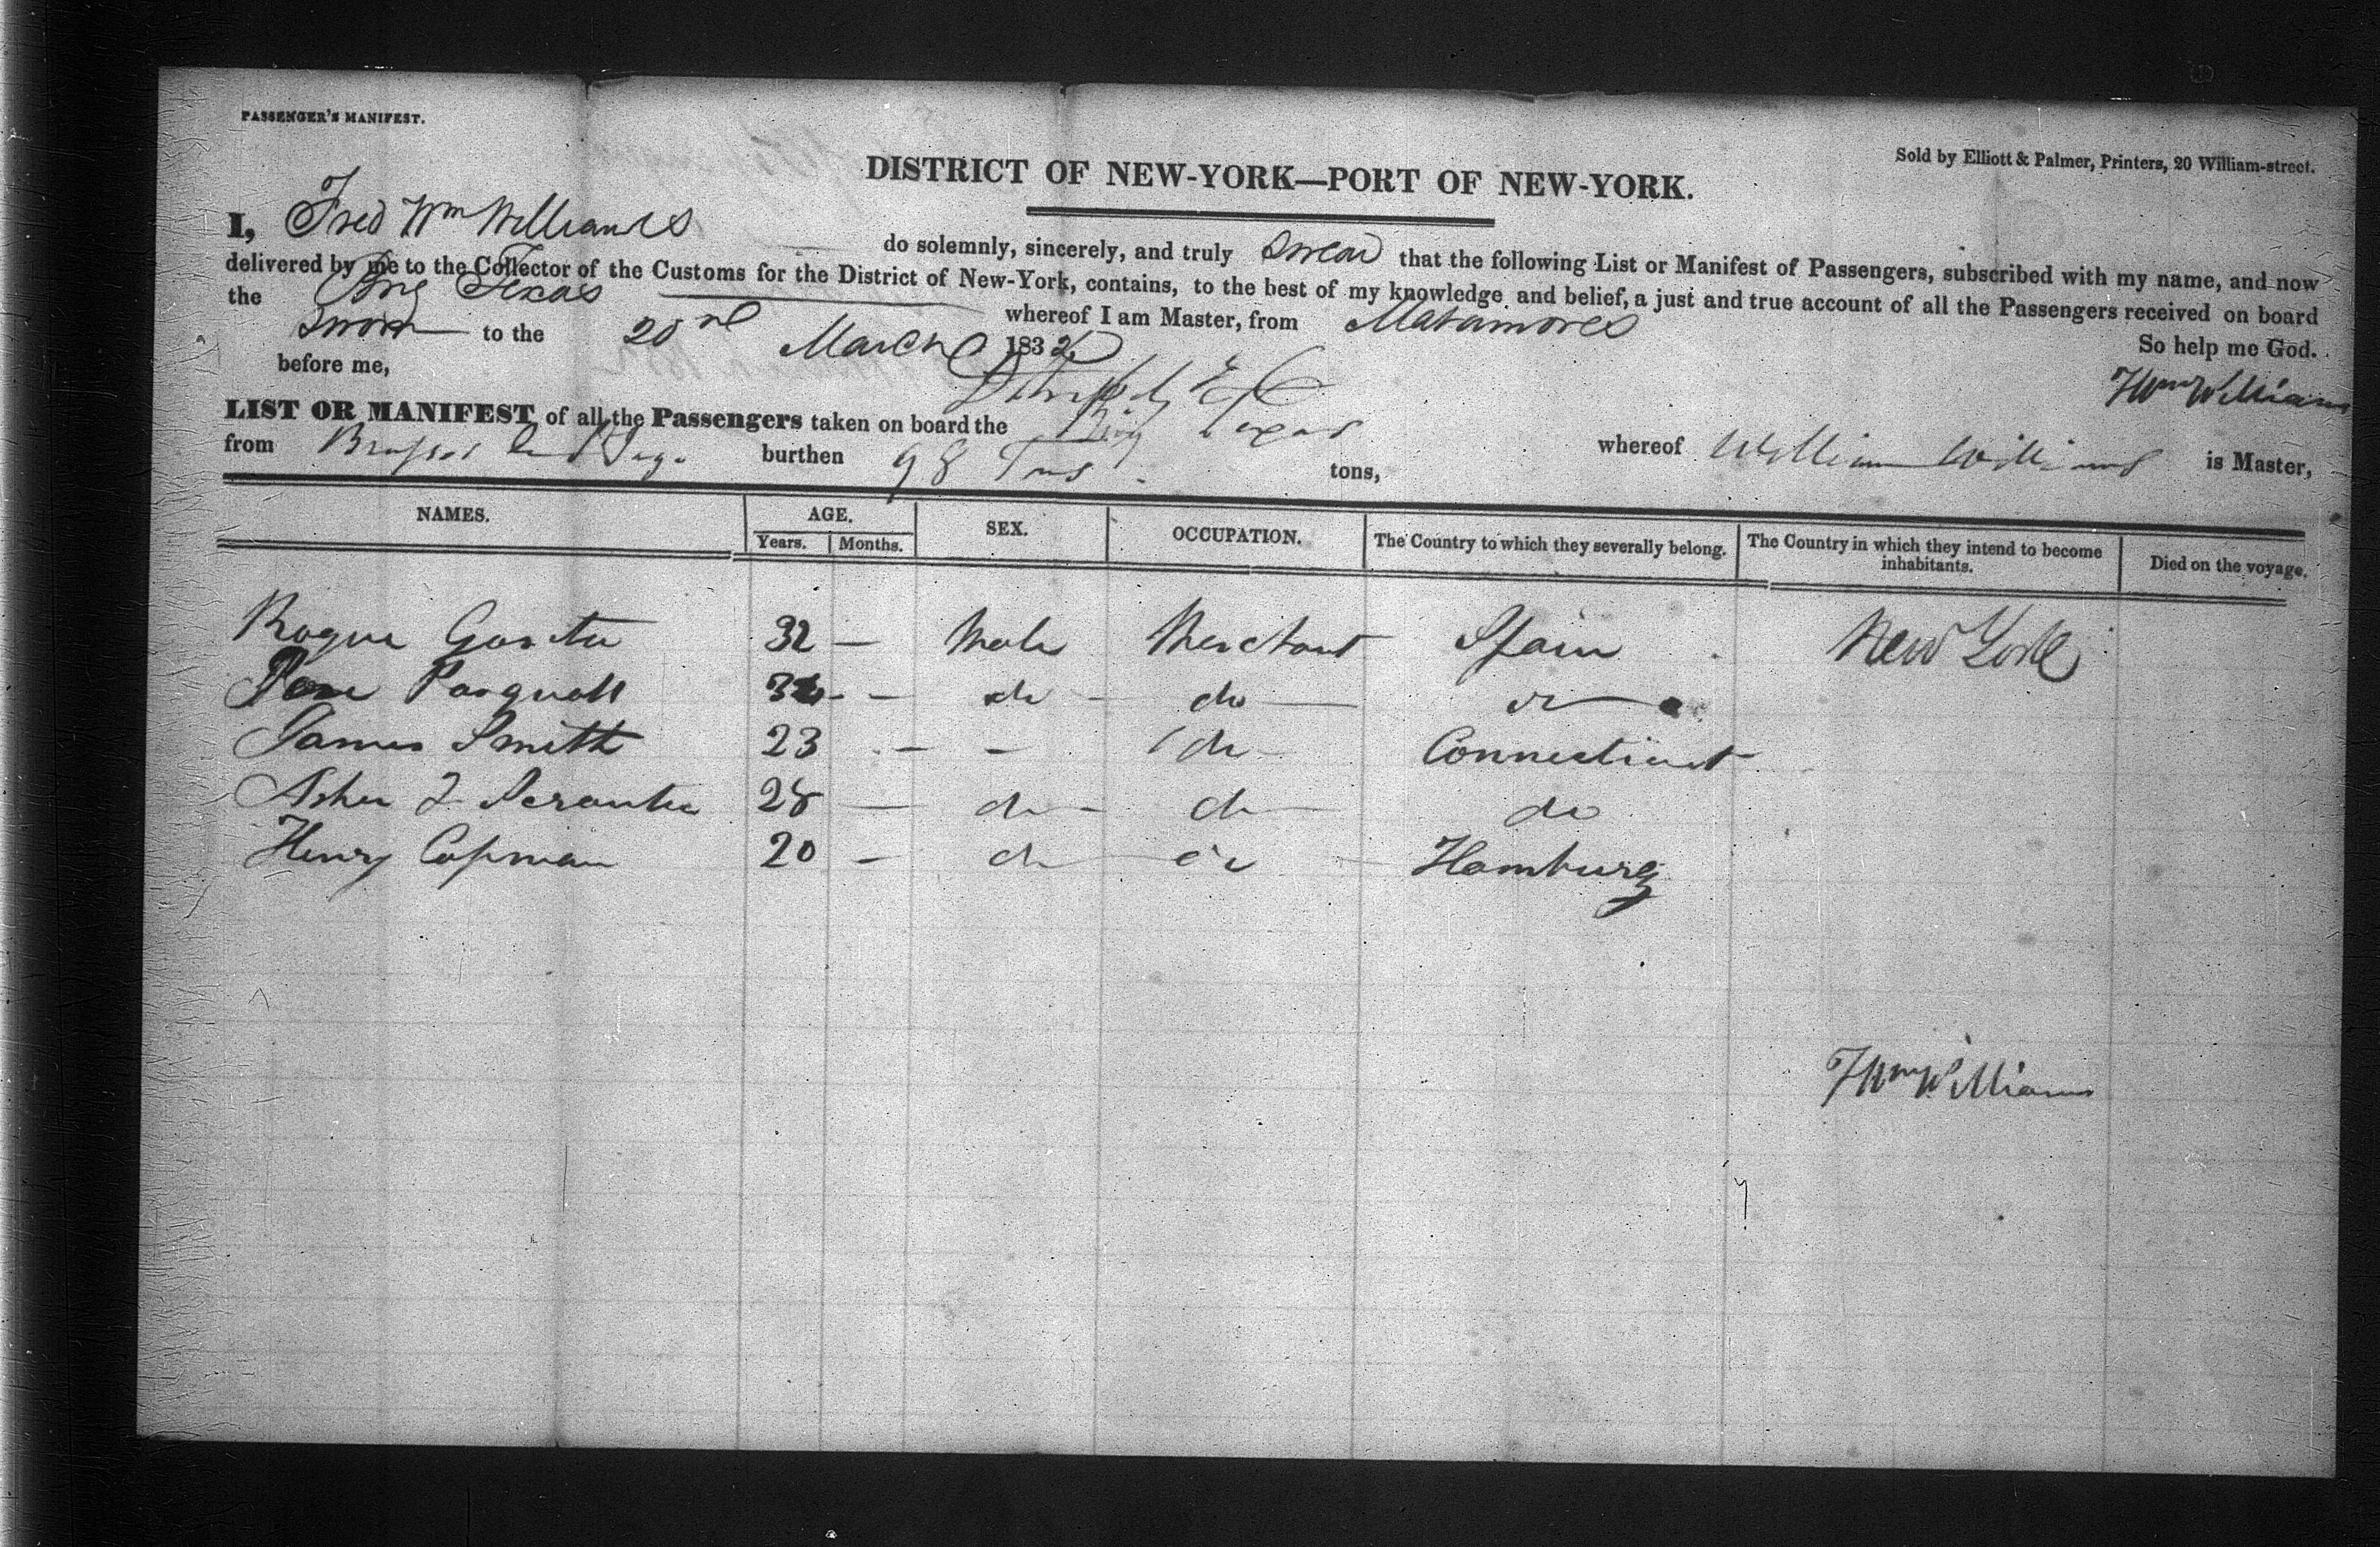 PASSENGER'S MANIFEST.
Sold by Elliott & Palmer, Printers, 20 William-street.
DISTRICT OF NEW-YORK—PORT OF NEW-YORK.
I, Fred Wm Williams do solemnly, sincerely, and truly Swear that the following List or Manifest of Passengers, subscribed with my name, and now
delivered by me to the Collector of the Customs for the District of New-York, contains, to the best of my knowledge and belief, a just and true account of all the Passengers received on board
the Brig Texas whereof I am Master, from Matamoros
Sworn to the 20 March 183 So help me God.
before me, F Wm Williams
LIST OR MANIFEST of all the Passengers taken on board the Brig Texas whereof William Williams is Master,
from burthen 98 Tons tons,
NAMES. AGE. SEX. OCCUPATION. The Country to which they severally belong. The Country in which they intend to become inhabitants. Died on the voyage.
Years. Months.
Roque 32 — Male Merchant Spain New York
Pasquall — do — do — do —
James Smith 23 — — do — Connecticut
Asher 28 — do — do — do
Henry Copman 20 — do — do — Hamburg
F Wm Williams